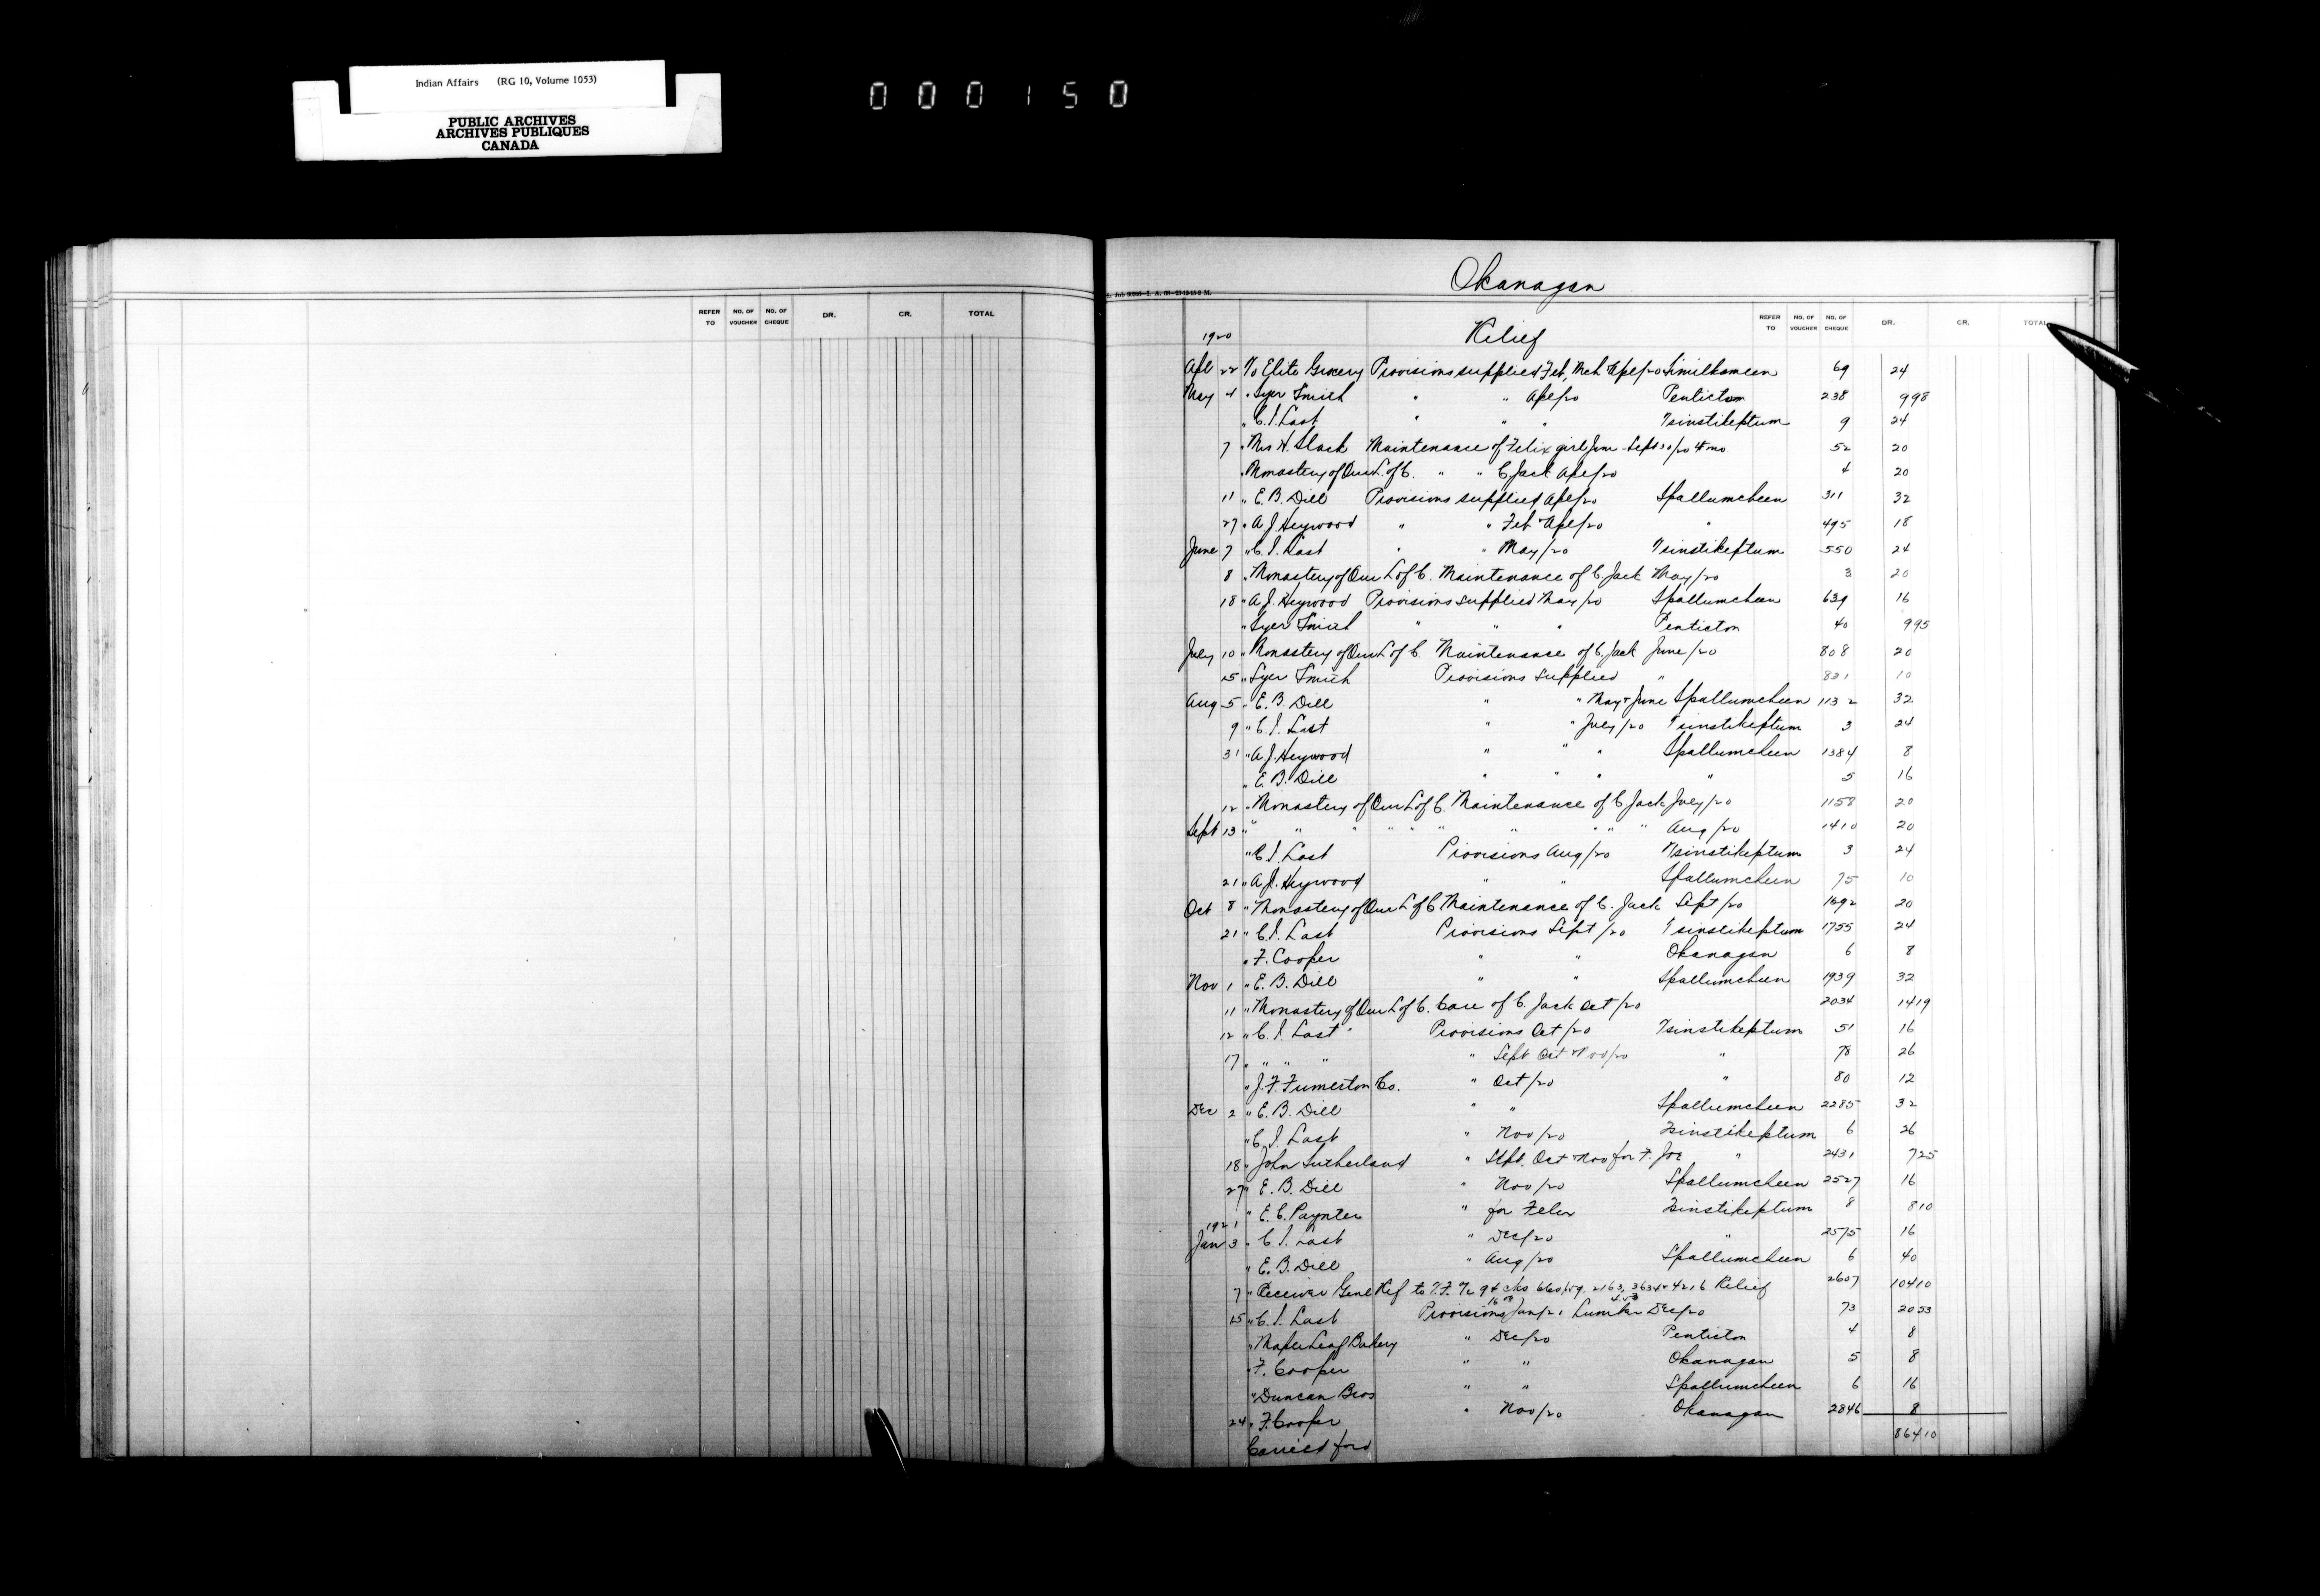 Indian Affairs (RG 10, Volume 1053)
PUBLIC ARCHIVES
ARCHIVES PUBLIQUES
CANADA
000150
REFER TO NO. OF VOUCHER NO. OF CHEQUE DR. CR. TOTAL
Okanagan
REFER TO NO. OF VOUCHER NO. OF CHEQUE DR. CR. TOTAL
1920 Relief
Apl 22 To Elite Grocery Provisions supplied Feb, Mch Apl/20 Similkameen 69 24
May 4 " Syer Smith " " Apl/20 Penticton 238 9 98
" C. I. Last " " " Tsinstikeptum 9 24
7 " Mrs H. Slack Maintenance of Felix girl June - Sept 30/20 4 mo 52 20
" Monastery of Our L of C. " " C. Jack Apl/20 4 20
11 " E. B. Dill Provisions supplied Apl/20 Spallumcheen 311 32
27 " A. J. Heywood " " Feb Apl/20 " 495 18
June 7 " C. I. Last " " May/20 Tsinstikeptum 550 24
8 " Monastery of Our L of C. Maintenance of C Jack May/20 3 20
18 " A. J. Heywood Provisions supplied May/20 Spallumcheen 639 16
" Syer Smith " " " Penticton 40 9 95
July 10 " Monastery of Our L of C. Maintenance of C. Jack June/20 808 20
15 " Syer Smith Provisions supplied " 831 10
Aug 5 " E. B. Dill " " May & June Spallumcheen 1132 32
9 " C. I. Last " " July/20 Tsinstikeptum 3 24
31 " A. J. Heywood " " " Spallumcheen 1384 8
" E. B. Dill " " " " 5 16
12 " Monastery of Our L of C. Maintenance of C Jack July/20 1158 20
Sept 13 " " " " " " " " " " Aug/20 1410 20
" C. I. Last Provisions Aug/20 Tsinstikeptum 3 24
21 " A. J. Heywood " " Spallumcheen 75 10
Oct 8 " Monastery of Our L of C Maintenance of C. Jack Sept/20 1692 20
21 " C. I. Last Provisions Sept/20 Tsinstikeptum 1755 24
" F. Cooper " " Okanagan 6 8
Nov 1 " E. B. Dill " " Spallumcheen 1939 32
11 " Monastery of Our L of C. Care of C. Jack Oct/20 2034 14 19
12 " C. I. Last Provisions Oct/20 Tsinstikeptum 51 16
17 " " " " Sept Oct Nov/20 " 78 26
" J. F. Fumerton Co. " Oct/20 " 80 12
Dec 2 " E. B. Dill " " Spallumcheen 2285 32
" C. I. Last " Nov/20 Tsinstikeptum 6 26
18 " John Sutherland " Sept. Oct Nov for F. Joe " 2431 7 25
27 " E. B. Dill " Nov/20 Spallumcheen 2527 16
" E. C. Paynter " for Felix Tsinstikeptum 8 8 10
1921
Jan 3 " C. I. Last " Dec/20 " 2575 16
" E. B. Dill " Aug/20 Spallumcheen 6 40
7 " Receiver Genl Ref to T.F. 2163, 3634 & 4216 Relief 2607 104 10
15 " C. I. Last Provisions Jan/21 Lumber Dec/20 73 20 53
" Maple Leaf Bakery " Dec/20 Penticton 4 8
" F. Cooper " " Okanagan 5 8
" Duncan Bros " " Spallumcheen 6 16
24 " F. Cooper " Nov/20 Okanagan 2846 8
Carried ford 864 10